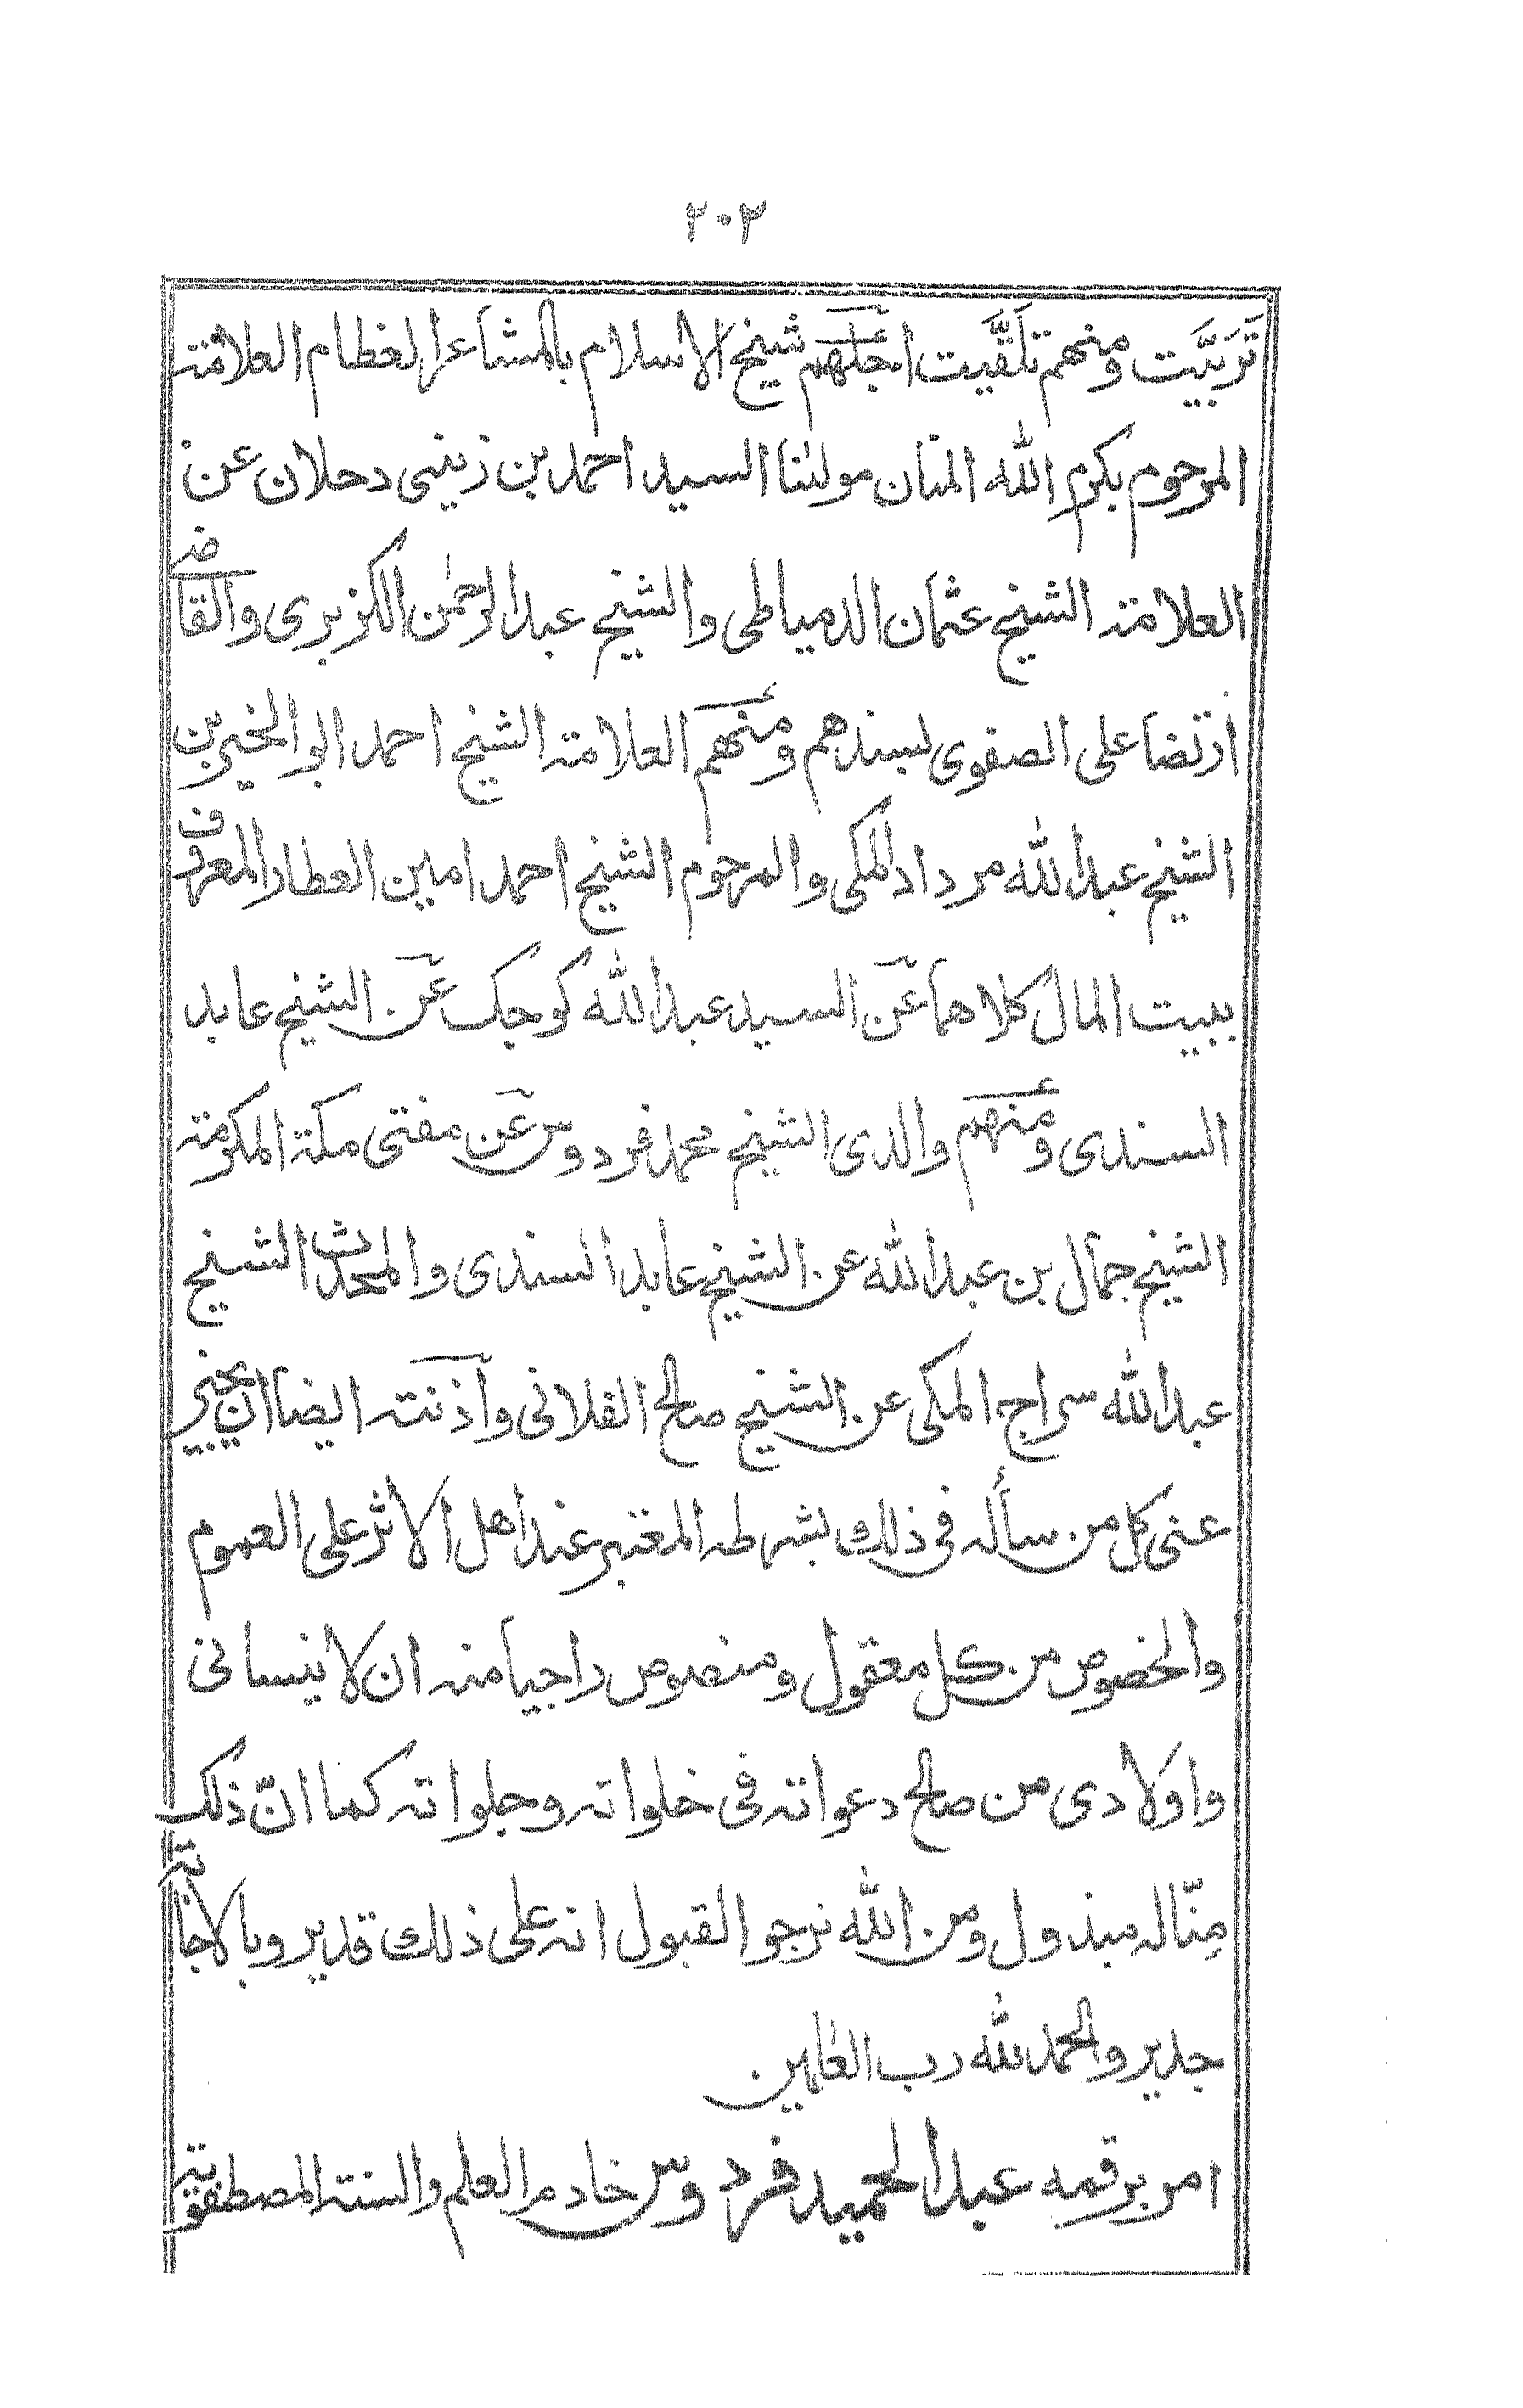 ٢٠٢
تَرَبَّيت ومنهم تَلَقَّيت اجَلّهم شيخ الاسلام بالمشاعر العظام العلامة
المرحوم بكرم الله المنان مولٰنا السيد احمد بن زينى دحلان عن
العلامة الشيخ عثمان الدمياطى والشيخ عبد الرحمٰن الكزبرى والقاضے
ارتضا على الصفوى بسندهم ومنهم العلامة الشيخ احمد ابو الخير بن
الشيخ عبد الله مرداد المكى والمرحوم الشيخ احمد امين العطار المعروف
ببيت المال كلاهما عن السيد عبد الله كوجك عن الشيخ عابد
السندى ومنهم والدى الشيخ محمد فردوس عن مفتى مكة المكرمة
الشيخ جمال بن عبد الله عن الشيخ عابد السندى والمحدث الشيخ
عبد الله سراج المكى عن الشيخ صالح الفلانى وآذنته ايضا ان يجيز
عنى كل من سأله فى ذلك بشرطه المعتبر عند اهل الاثر على العموم
والخصوص من كل معقول ومنصوص راجيا منه ان لا ينسانى
واولادى من صالح دعواته فى خلواته وجلواته كما انّ ذلك
مِنّا له مبذول ومن الله نرجو القبول انه على ذلك قدير وبالاجابة
جدير والحمد لله رب العٰلمين
امر برقمه عبد الحميد فردوس خادم العلم والسنة المصطفوية